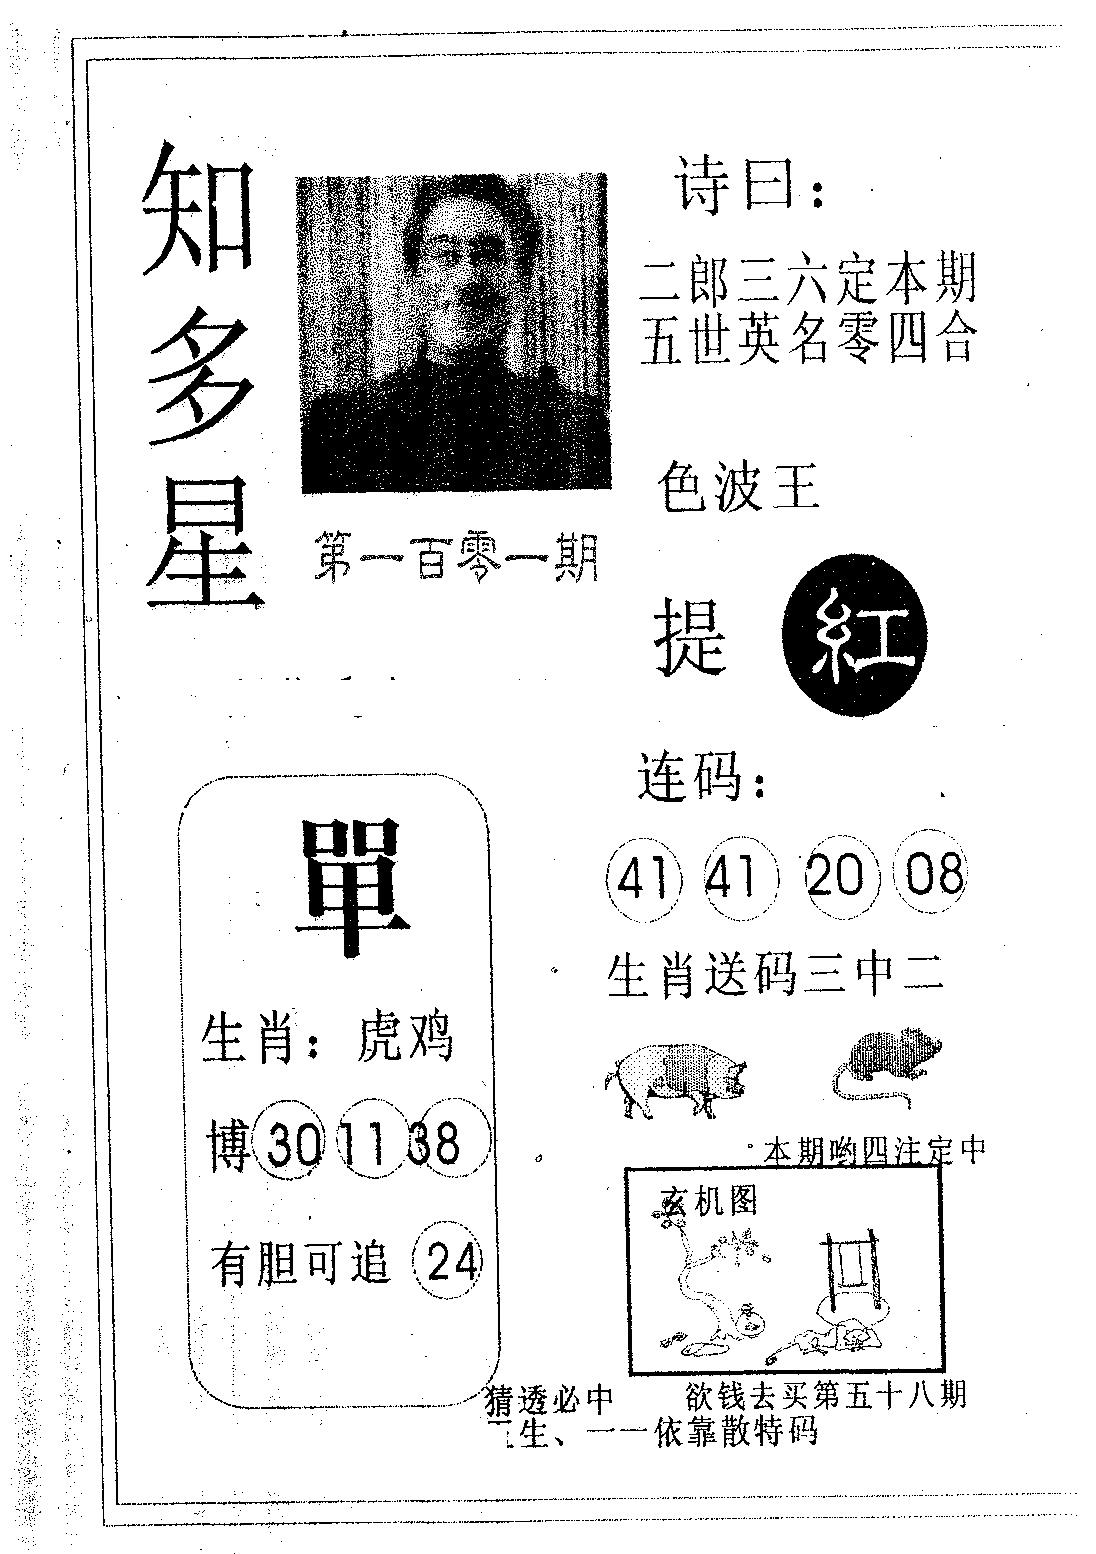 知多星
第一百零一期
诗曰：
二郎三六定本期
五世英名零四合
色波王
提 紅
连码：
41 41 20 08
生肖送码三中二
單
生肖：虎鸡
博 30 11 38
有胆可追 24
本期哟四注定中
玄机图
猜透必中 欲钱去买第五十八期
生、一一依靠散特码